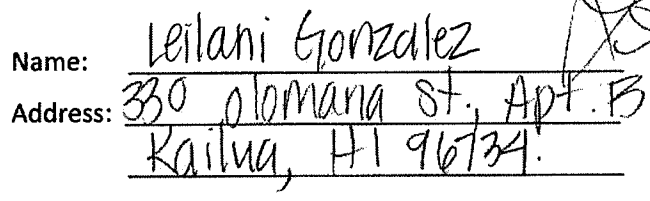 Name: Leilani Gonzalez
Address: 330 olomana St., Apt. B
Kailua, HI 96734.